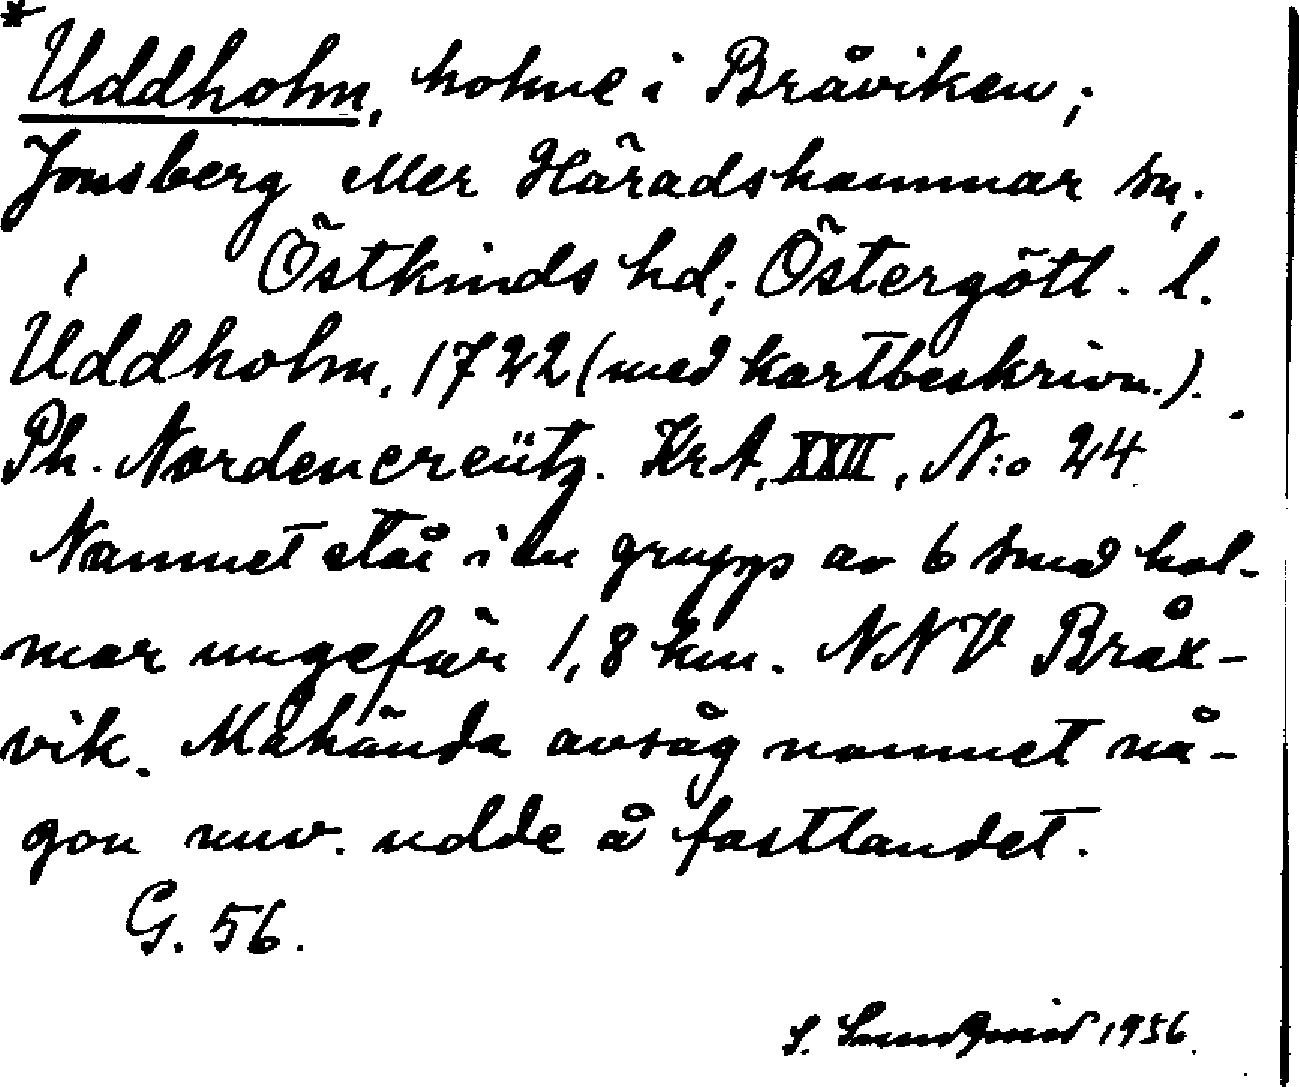 *
Uddholm, holme i Bråviken;
Jonsberg eller Häradshammar sn;
Östkinds hd; Östergötl. l.
Uddholm, 1722 (med kartbeskrivn.).
Ph. Nordencreütz. KrA, XXII, N:o 24
Namnet står i en grupp av 6 små hol-
mar ungefär 1,8 km. NNV Bråx-
vik. Måhända avsåg namnet nå-
gon nuv. udde å fastlandet.
G. 56.
S. 1956.